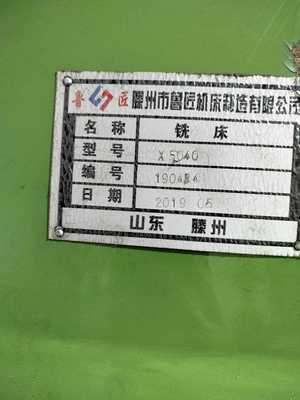 鲁 匠 滕州市鲁匠机床制造有限公
名称 铣床
型号 X5040
编号
日期 2019 05
山东 滕州